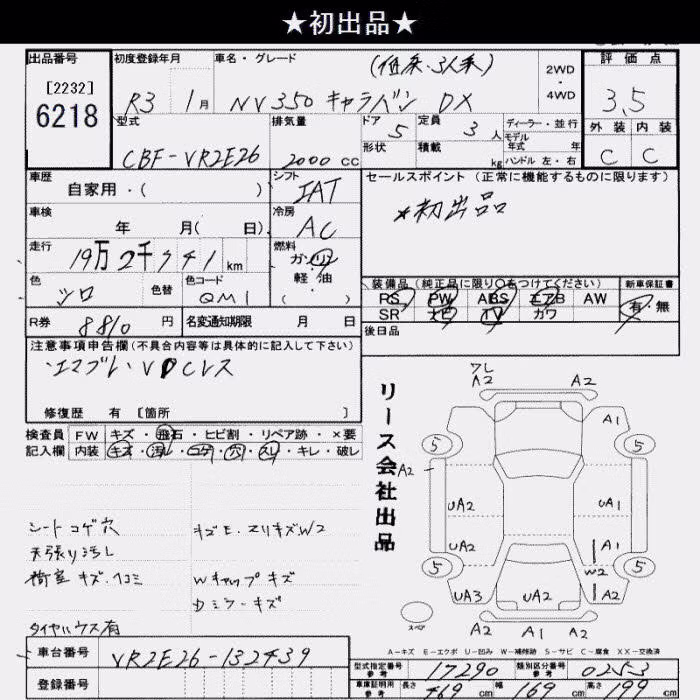 ★初出品★
出品番号 初度登録年月 車名・グレード (低床・3人乗) 2WD 評価点
[2232] R3 1月 NV350 キャラバン DX 4WD 3.5
6218 型式 排気量 ドア 5 定員 3人 ディーラー・並行 外装 内装
モデル年式 年
CBF-VR2E26 2000cc 形状 積載 kg ハンドル 左・右 C C
車歴 シフト セールスポイント(正常に機能するものに限ります)
自家用・( ) IAT ★初出品
車検 冷房
年 月( 日) AC
走行 燃料
19万2千741km ガソリン
色 色替 色コード 軽・油 装備品(純正品に限り○をつけてください) 新車保証書
シロ QM1 ( ) PS PW ABS エアB AW 有・無
R券 8810円 名変通知期限 月 日 SR ナビ TV カワ
後日品
注意事項申告欄(不具合内容等は具体的に記入して下さい)
・エマブレ VDCレス
修復歴 有 [箇所 ]
検査員 FW キズ・飛石・ヒビ割・リペア跡・×要
記入欄 内装 キズ・汚レ・コゲ・穴・スレ・キレ・破レ
リース会社出品
ワレ
A2 A2
5 A1 5
A2
UA2 UA1
UA2 A1
5 W2 5
UA3 UA2 A2
スペア A2 A1 A2
シートコゲ穴 キズE.スリキズW2
天張り汚レ
荷室キズ.凹コミ Wキャップキズ
Dミラーキズ
タイヤハウス有
A-キズ E-エクボ U-凹み W-補修跡 S-サビ C-腐食 XX-交換済
車台番号 VR2E26-132439 型式指定番号 参考 17290 類別区分番号 参考 0253
登録番号 車庫証明用 参考 長さ 469cm 幅 169cm 高さ 199cm